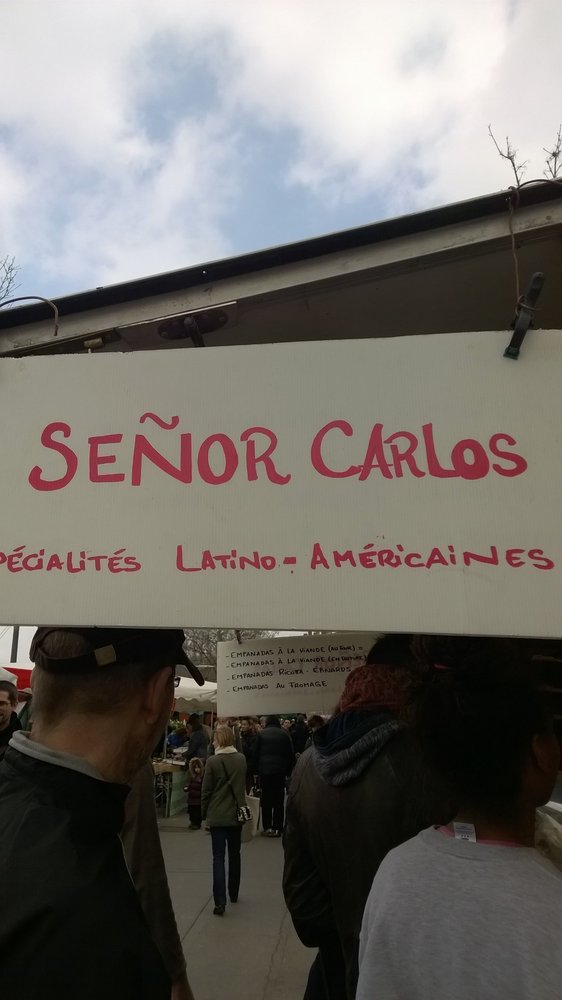 SEÑOR CARLOS
PÉCIALITÉS LATINO-AMÉRICAINES
-EMPANADAS À LA VIANDE (AU FOUR)
-EMPANADAS À LA VIANDE (EN FRITURE)
-EMPANADAS RICOTA-EPINARDS
-EMPANADAS AU FROMAGE